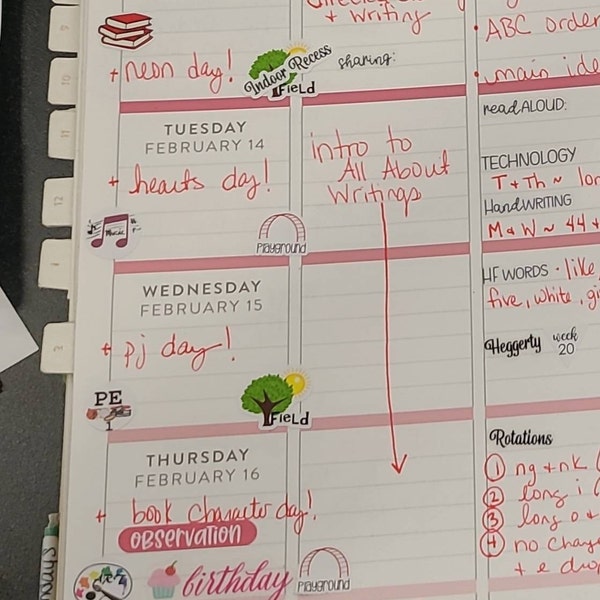 + writing
+ neon day!
Indoor Recess
Field
TUESDAY
FEBRUARY 14
+ hearts day!
MUSIC
Playground
WEDNESDAY
FEBRUARY 15
+ pj day!
PE
Field
THURSDAY
FEBRUARY 16
+ book character day!
OBSERVATION
birthday
Playground
sharing:
intro to
All About
Writings
• ABC order
• main
readALOUD:
TECHNOLOGY
T + Th ~
HandWRITING
M & W ~ 44 +
HF WORDS • like,
five, white,
Heggerty week
20
Rotations
1 ng + nk
2 long i
3 long o +
4 no
+ e